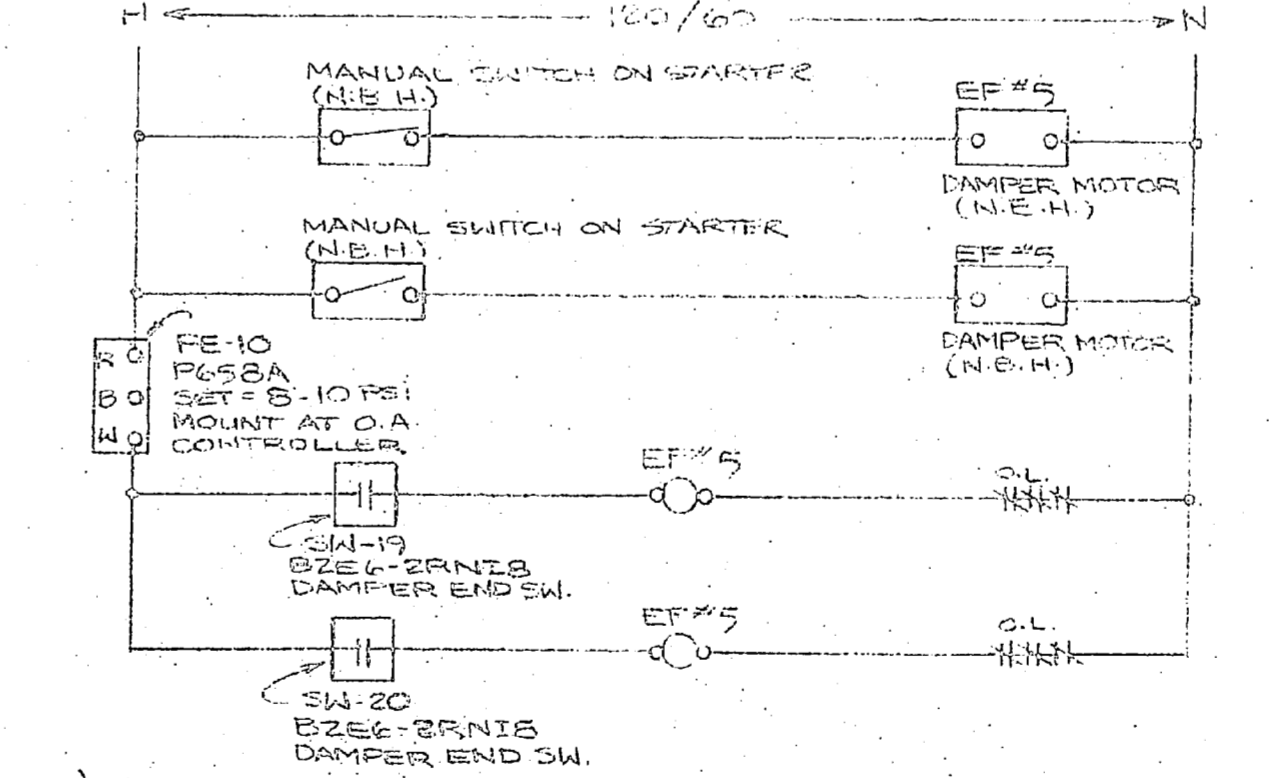 H 120/60 N
MANUAL SWITCH ON STARTER
(N.B.H.)
EF #5
DAMPER MOTOR
(N.E.H.)
MANUAL SWITCH ON STARTER
(N.B.H.)
EF #5
DAMPER MOTOR
(N.B.H.)
R
B
W
PE-10
P658A
SET = 8-10 PSI
MOUNT AT O.A.
CONTROLLER
EF #5
O.L.
SW-19
BZE6-2RN18
DAMPER END SW.
EF #5
O.L.
SW-20
BZE6-2RN18
DAMPER END SW.